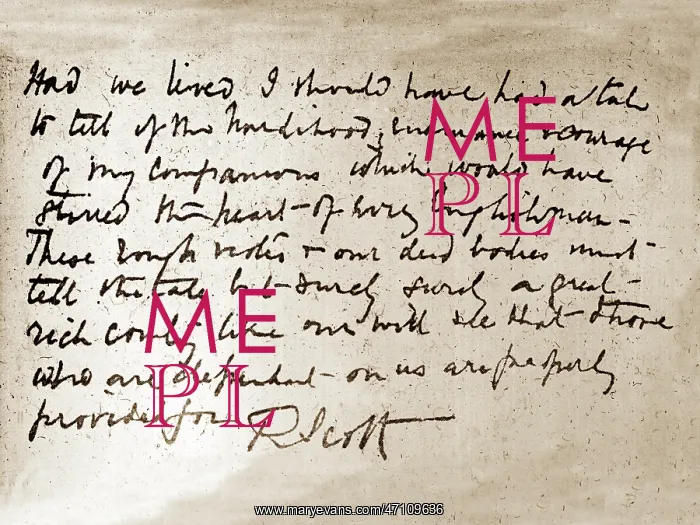 Had we lived I should have had a tale
to tell of the hardihood, endurance & courage
of my companions which would have
stirred the heart of every Englishman -
These rough notes & our dead bodies must
tell the tale but surely surely a great
rich country like ours will see that those
who are dependent on us are properly
provided for R Scott
ME
PL
ME
PL
www.maryevans.com/47109636